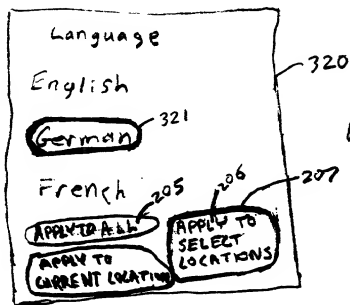 Language
320
English
321
German
French
205
206
207
APPLY TO ALL
APPLY TO
SELECT
LOCATIONS
APPLY TO
CURRENT LOCATION